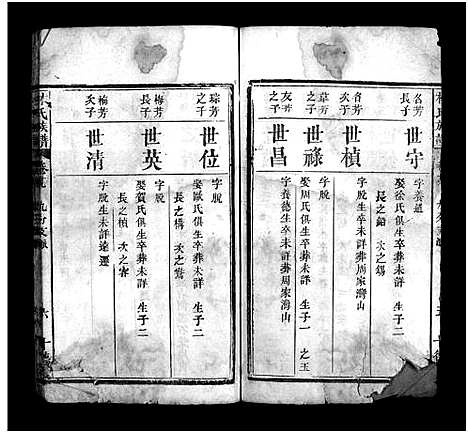 名芳
長子
世守
字養通
娶徐氏俱生卒葬未詳 生子二
長之鎬 次之錫
名芳
次子
世楨
字脫
草芳
之子
世祿
字脫
娶周氏俱生卒未詳葬周家灣山 生子一 之玉
友芳
之子
世昌
字養德生卒未詳葬周家灣山
琮芳
之子
世位
字脫
娶歐氏俱生卒葬未詳 生子二
長之構 次之
梅芳
長子
世英
字脫
娶賀氏俱生卒葬未詳 生子二
長之楨 次之
梅芳
次子
世清
字脫生未詳遠遷
氏族譜